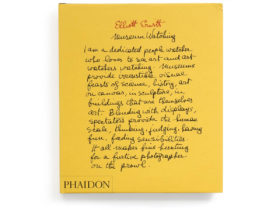 Elliott Erwitt
Museum Watching
I am a dedicated people watcher
who loves to see art and art
watchers watching. Museums
provide irresistible visual
feasts of science, history, art
on canvas, in sculpture, in
buildings that are themselves
art. Blending with displays,
spectators provide the human
scale, thinking, judging, having
fun, feeding sensibilities
It all makes fine hunting
for a furtive photographer
on the prowl.
PHAIDON